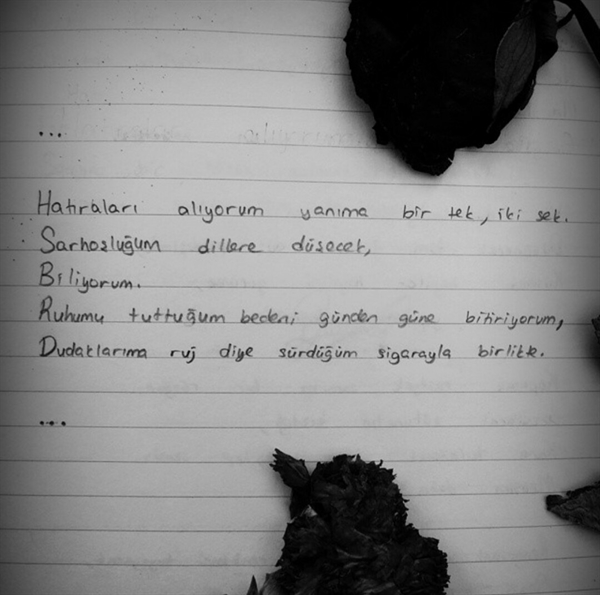 ...
Hatıraları alıyorum yanıma bir tek, iki sek.
Sarhoşluğum dillere düşecek,
Biliyorum.
Ruhumu tuttuğum bedeni günden güne bitiriyorum,
Dudaklarıma ruj diye sürdüğüm sigarayla birlikte.
...